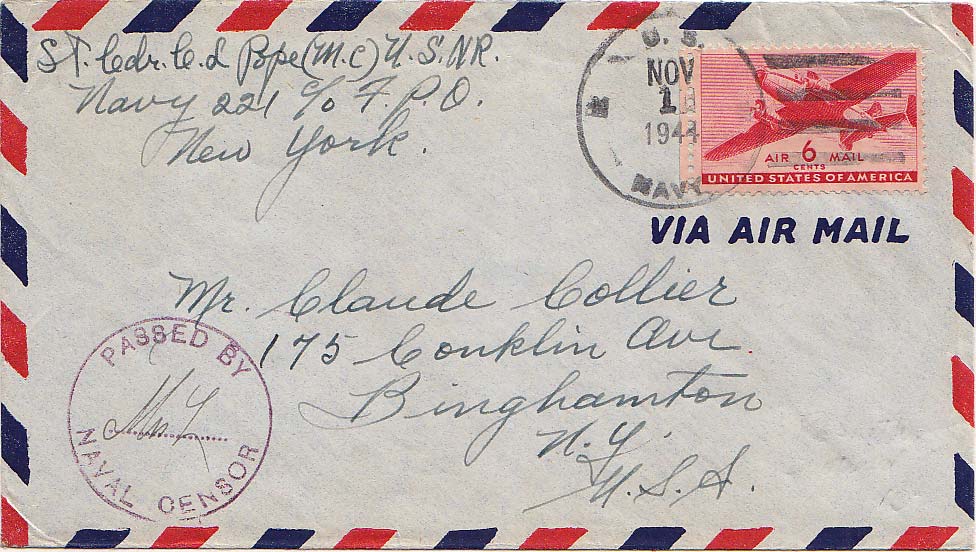 Lt. Cdr. C. L Pope (M.C) U.S.NR.
Navy 221 c/o F.P.O.
New York.
U. S.
NOV
1
1944
NAVY
AIR 6 MAIL
CENTS
UNITED STATES OF AMERICA
VIA AIR MAIL
Mr. Claude Collier
175 Conklin Ave.
Binghamton
N.Y.
U.S.A.
PASSED BY
NAVAL CENSOR